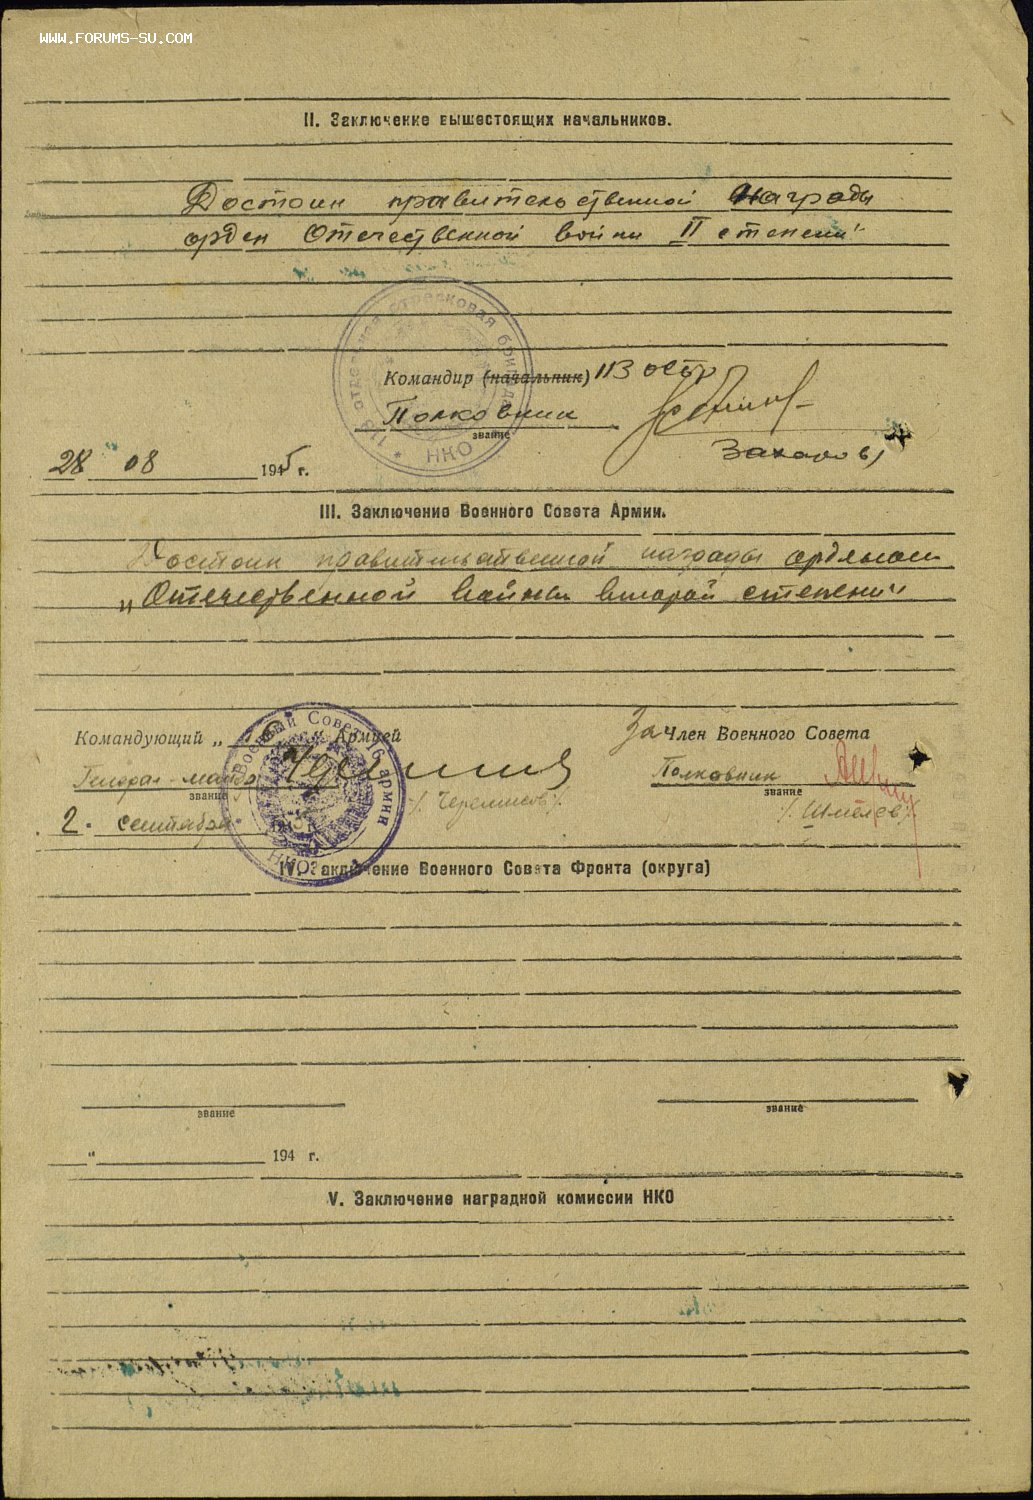 WWW.FORUMS-SU.COM
II. Заключение вышестоящих начальников.
Достоин правительственной награды
орден Отечественной войны II степени"
113 отдельная стрелковая бригада * НКО *
Командир (начальник) 113 осбр
Полковник
звание
Захаров/
28 08 1945 г.
III. Заключение Военного Совета Армии.
Достоин правительственной награды орденом
„Отечественной войны второй степени"
Командующий „16" Армией
За Член Военного Совета
Военный Совет 16 армии * НКО *
Генерал-майор
Полковник
звание
звание
/Черемисов/
/Шмелев/
2. сентября
IV. Заключение Военного Совета Фронта (округа)
звание
звание
" 194 г.
V. Заключение наградной комиссии НКО